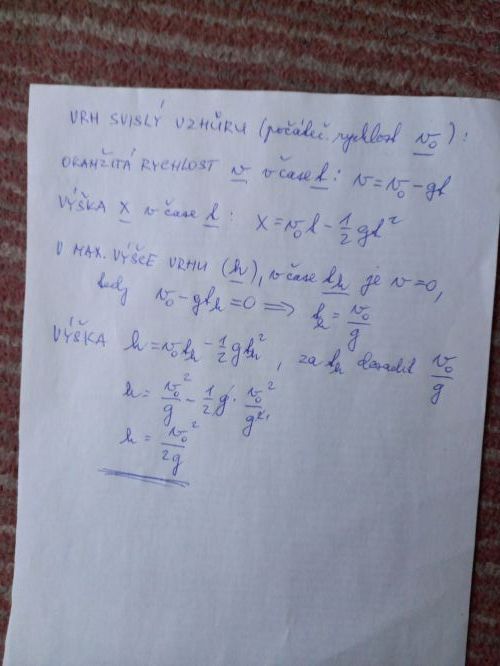 VRH SVISLÝ VZHŮRU (počáteč. rychlost v₀):
OKAMŽITÁ RYCHLOST v v čase t: v = v₀ - gt
VÝŠKA x v čase t: x = v₀t - 1/2 gt²
V MAX. VÝŠCE VRHU (h), v čase tₕ je v = 0,
tedy v₀ - gtₕ = 0 ⟹ tₕ = v₀/g
VÝŠKA h = v₀tₕ - 1/2 gtₕ², za tₕ dosadit v₀/g
h = v₀²/g - 1/2 g · v₀²/g²
h = v₀²/2g